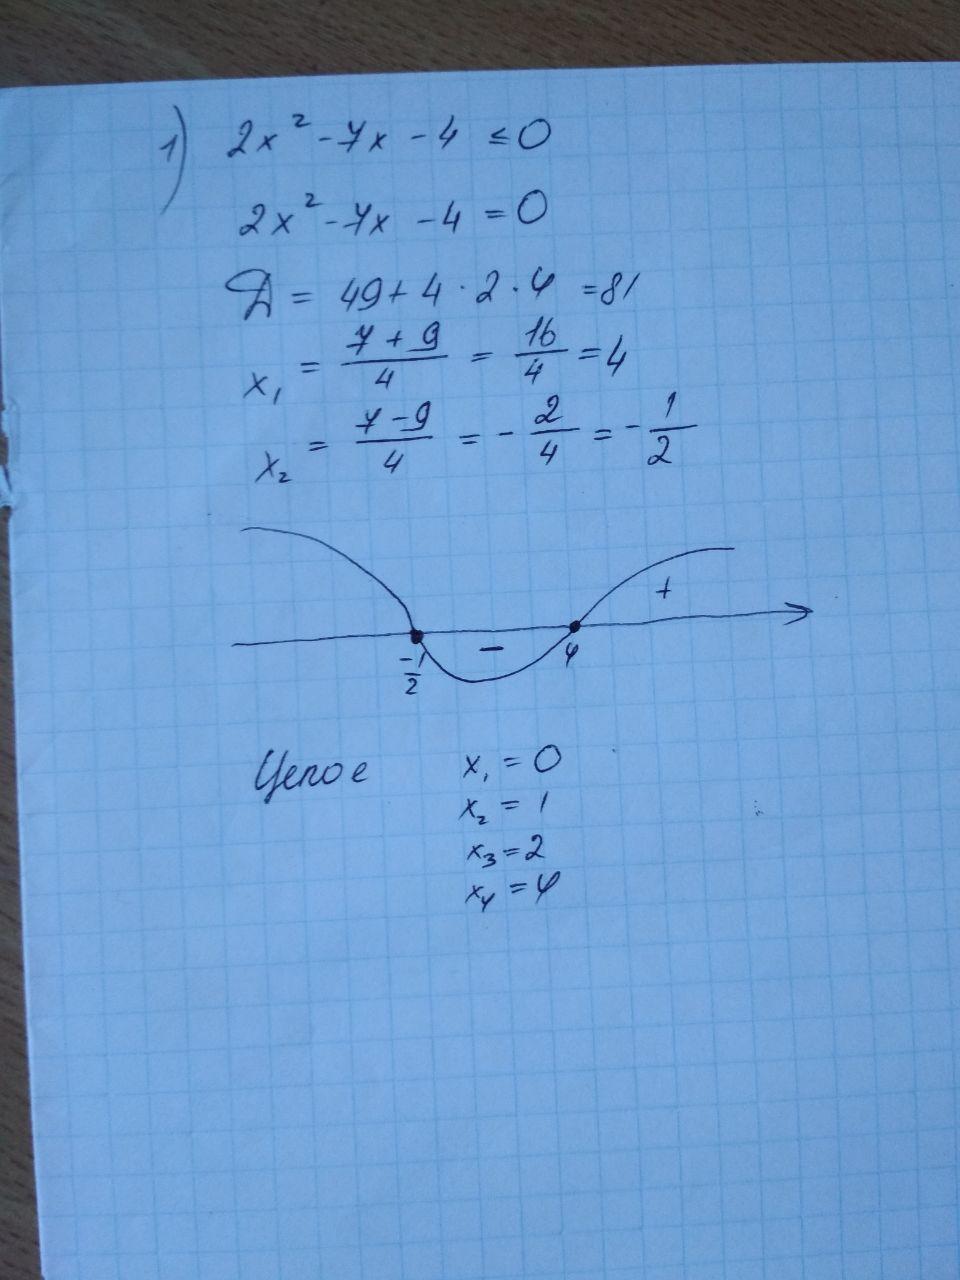 1) 2x² - 7x - 4 ≤ 0
2x² - 7x - 4 = 0
D = 49 + 4 · 2 · 4 = 81
x₁ = (7 + 9)/4 = 16/4 = 4
x₂ = (7 - 9)/4 = - 2/4 = - 1/2
+
-
-1/2 4
Целое x₁ = 0
x₂ = 1
x₃ = 2
x₄ = 4